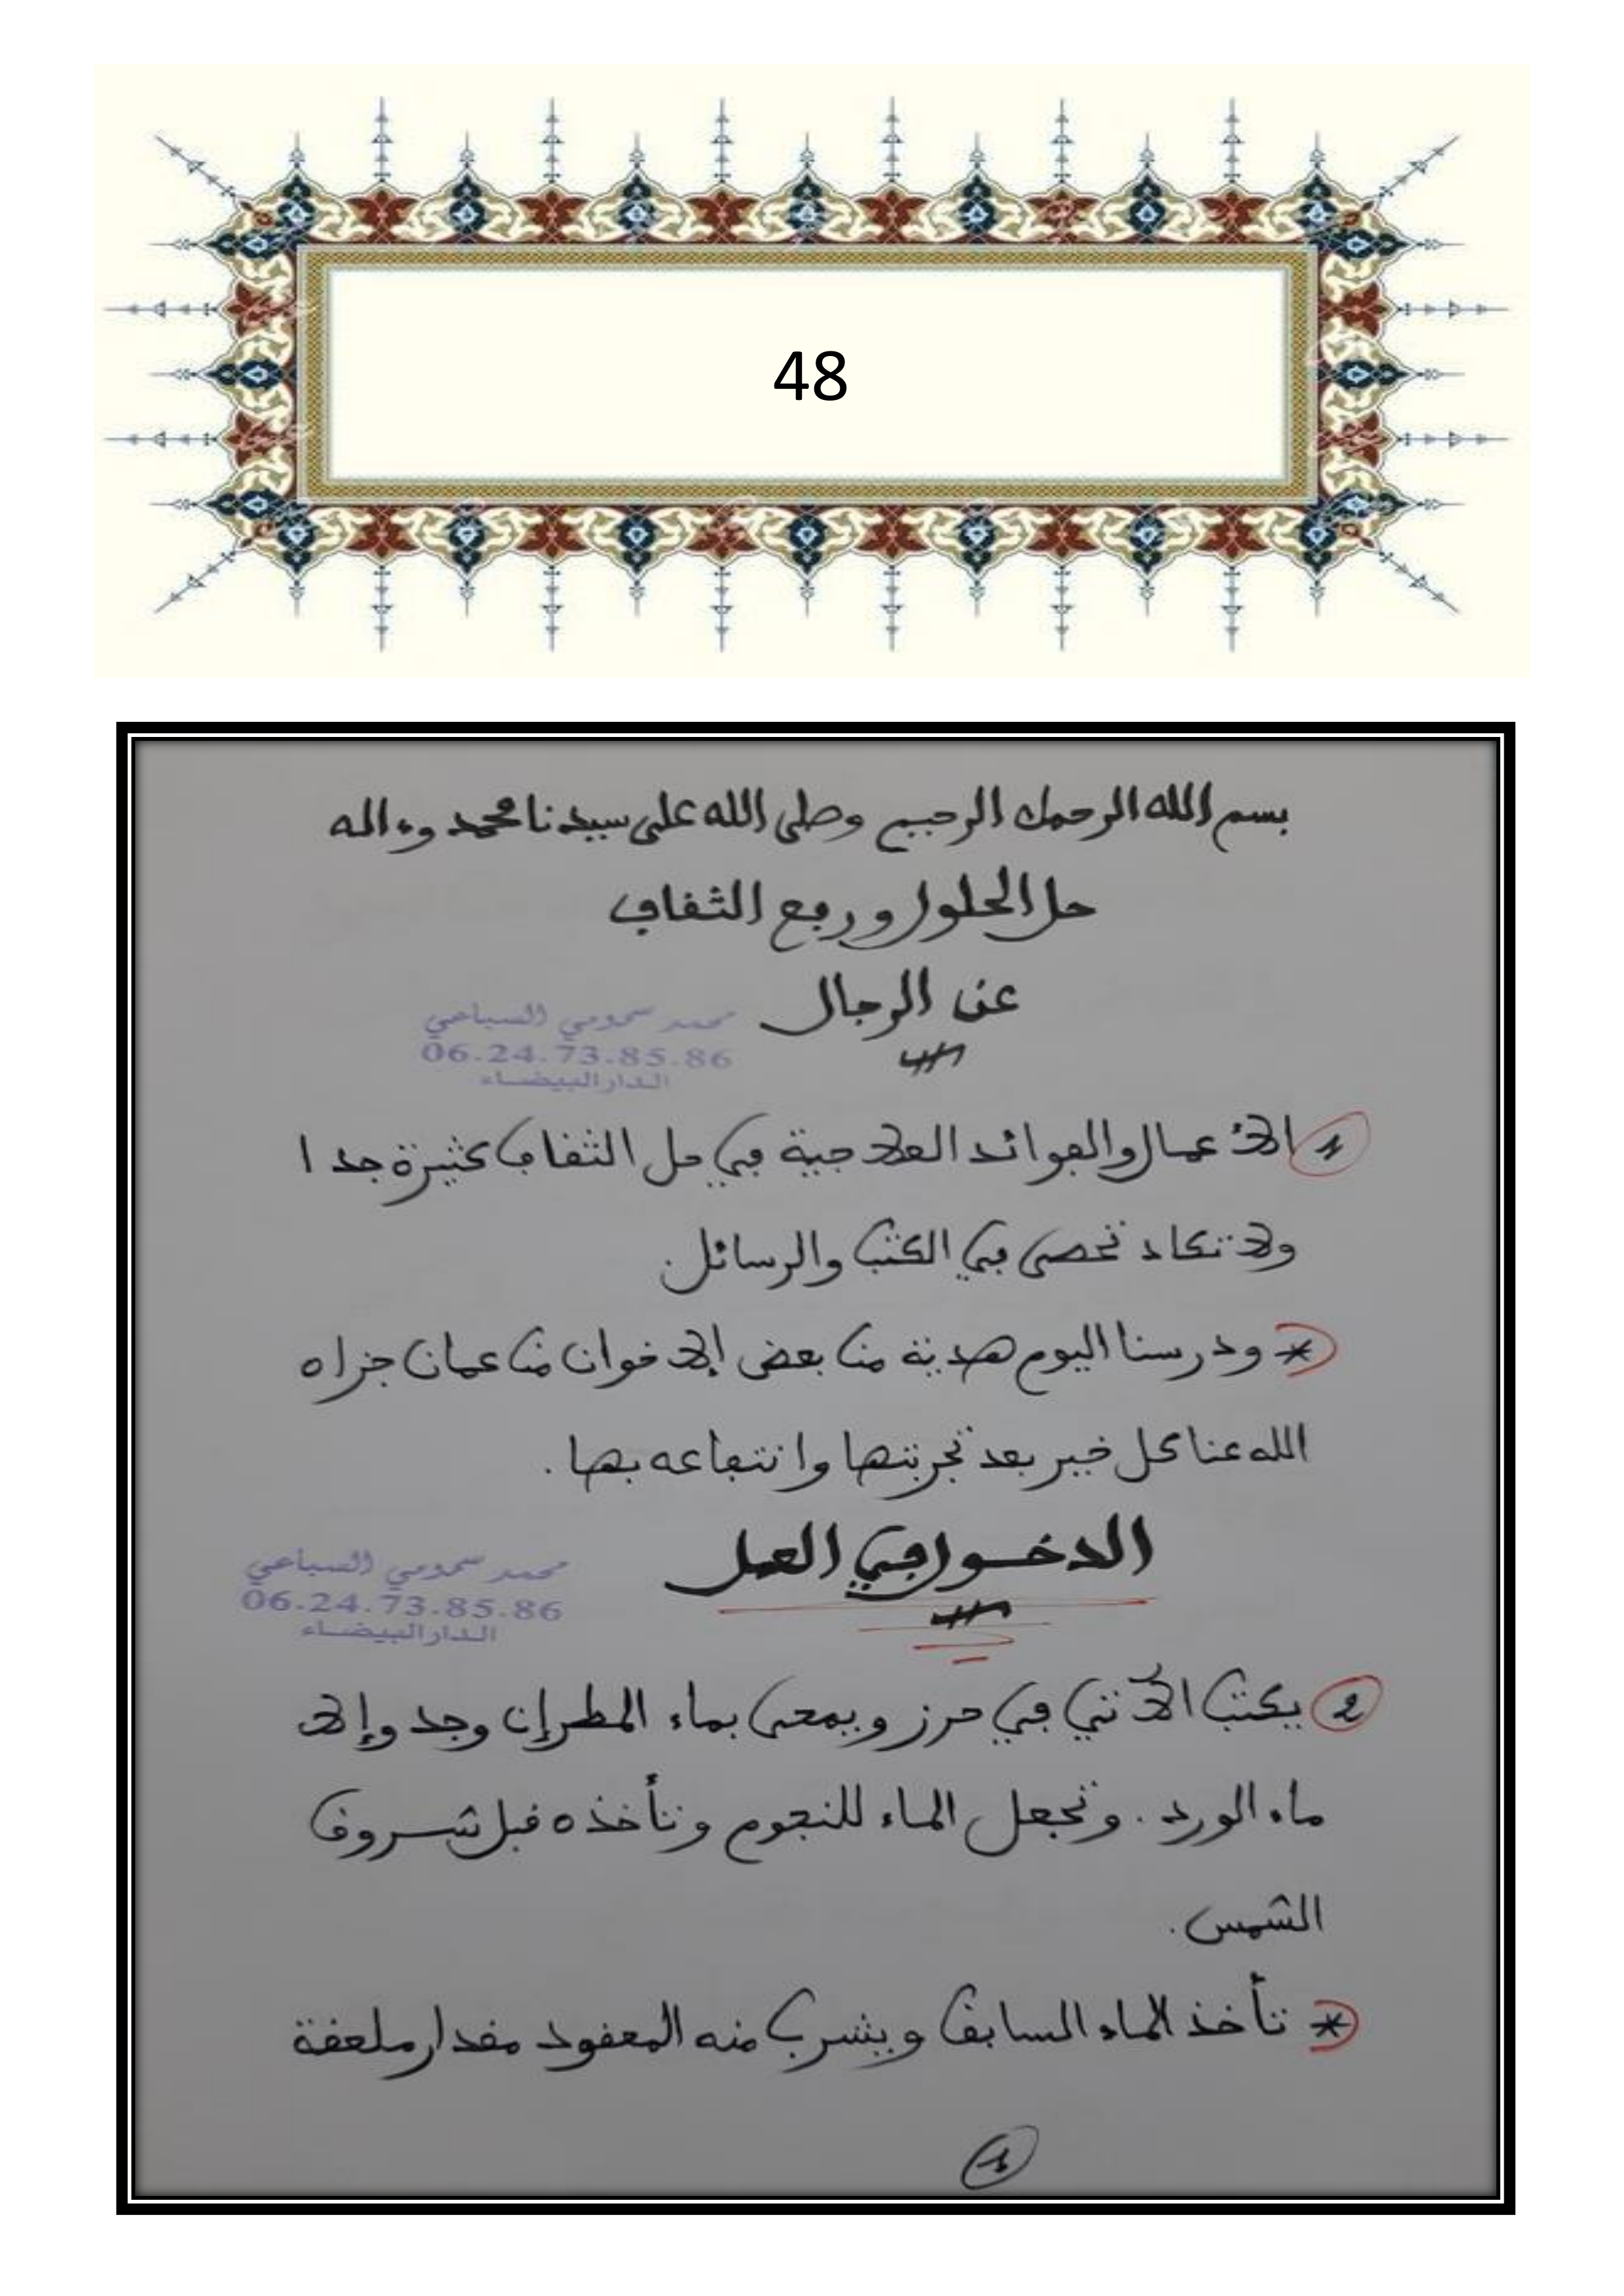 48
بسم الله الرحمن الرحيم وصلى الله على سيدنا محمد وءاله
حل الحلول ورفع الثقاف
عن الرجال
محمد سمومي السباعي
06.24.73.85.86
الدار البيضاء
1 الأعمال والفوائد العلاجية في حل الثقاف كثيرة جدا
ولا تكاد تحصى في الكتب والرسائل.
* ودرسنا اليوم هدية من بعض الإخوان من عمان جزاه
الله عنا كل خير بعد تجربتها وانتفاعه بها.
الدخول في العمل
محمد سمومي السباعي
06.24.73.85.86
الدار البيضاء
2 يكتب الآتي في حرز ويمحى بماء المطر إن وجد وإلا
ماء الورد. وتجعل الماء للنجوم وتأخذه قبل شروق
الشمس.
* تأخذ الماء السابق ويشرب منه المعقود مقدار ملعقة
1